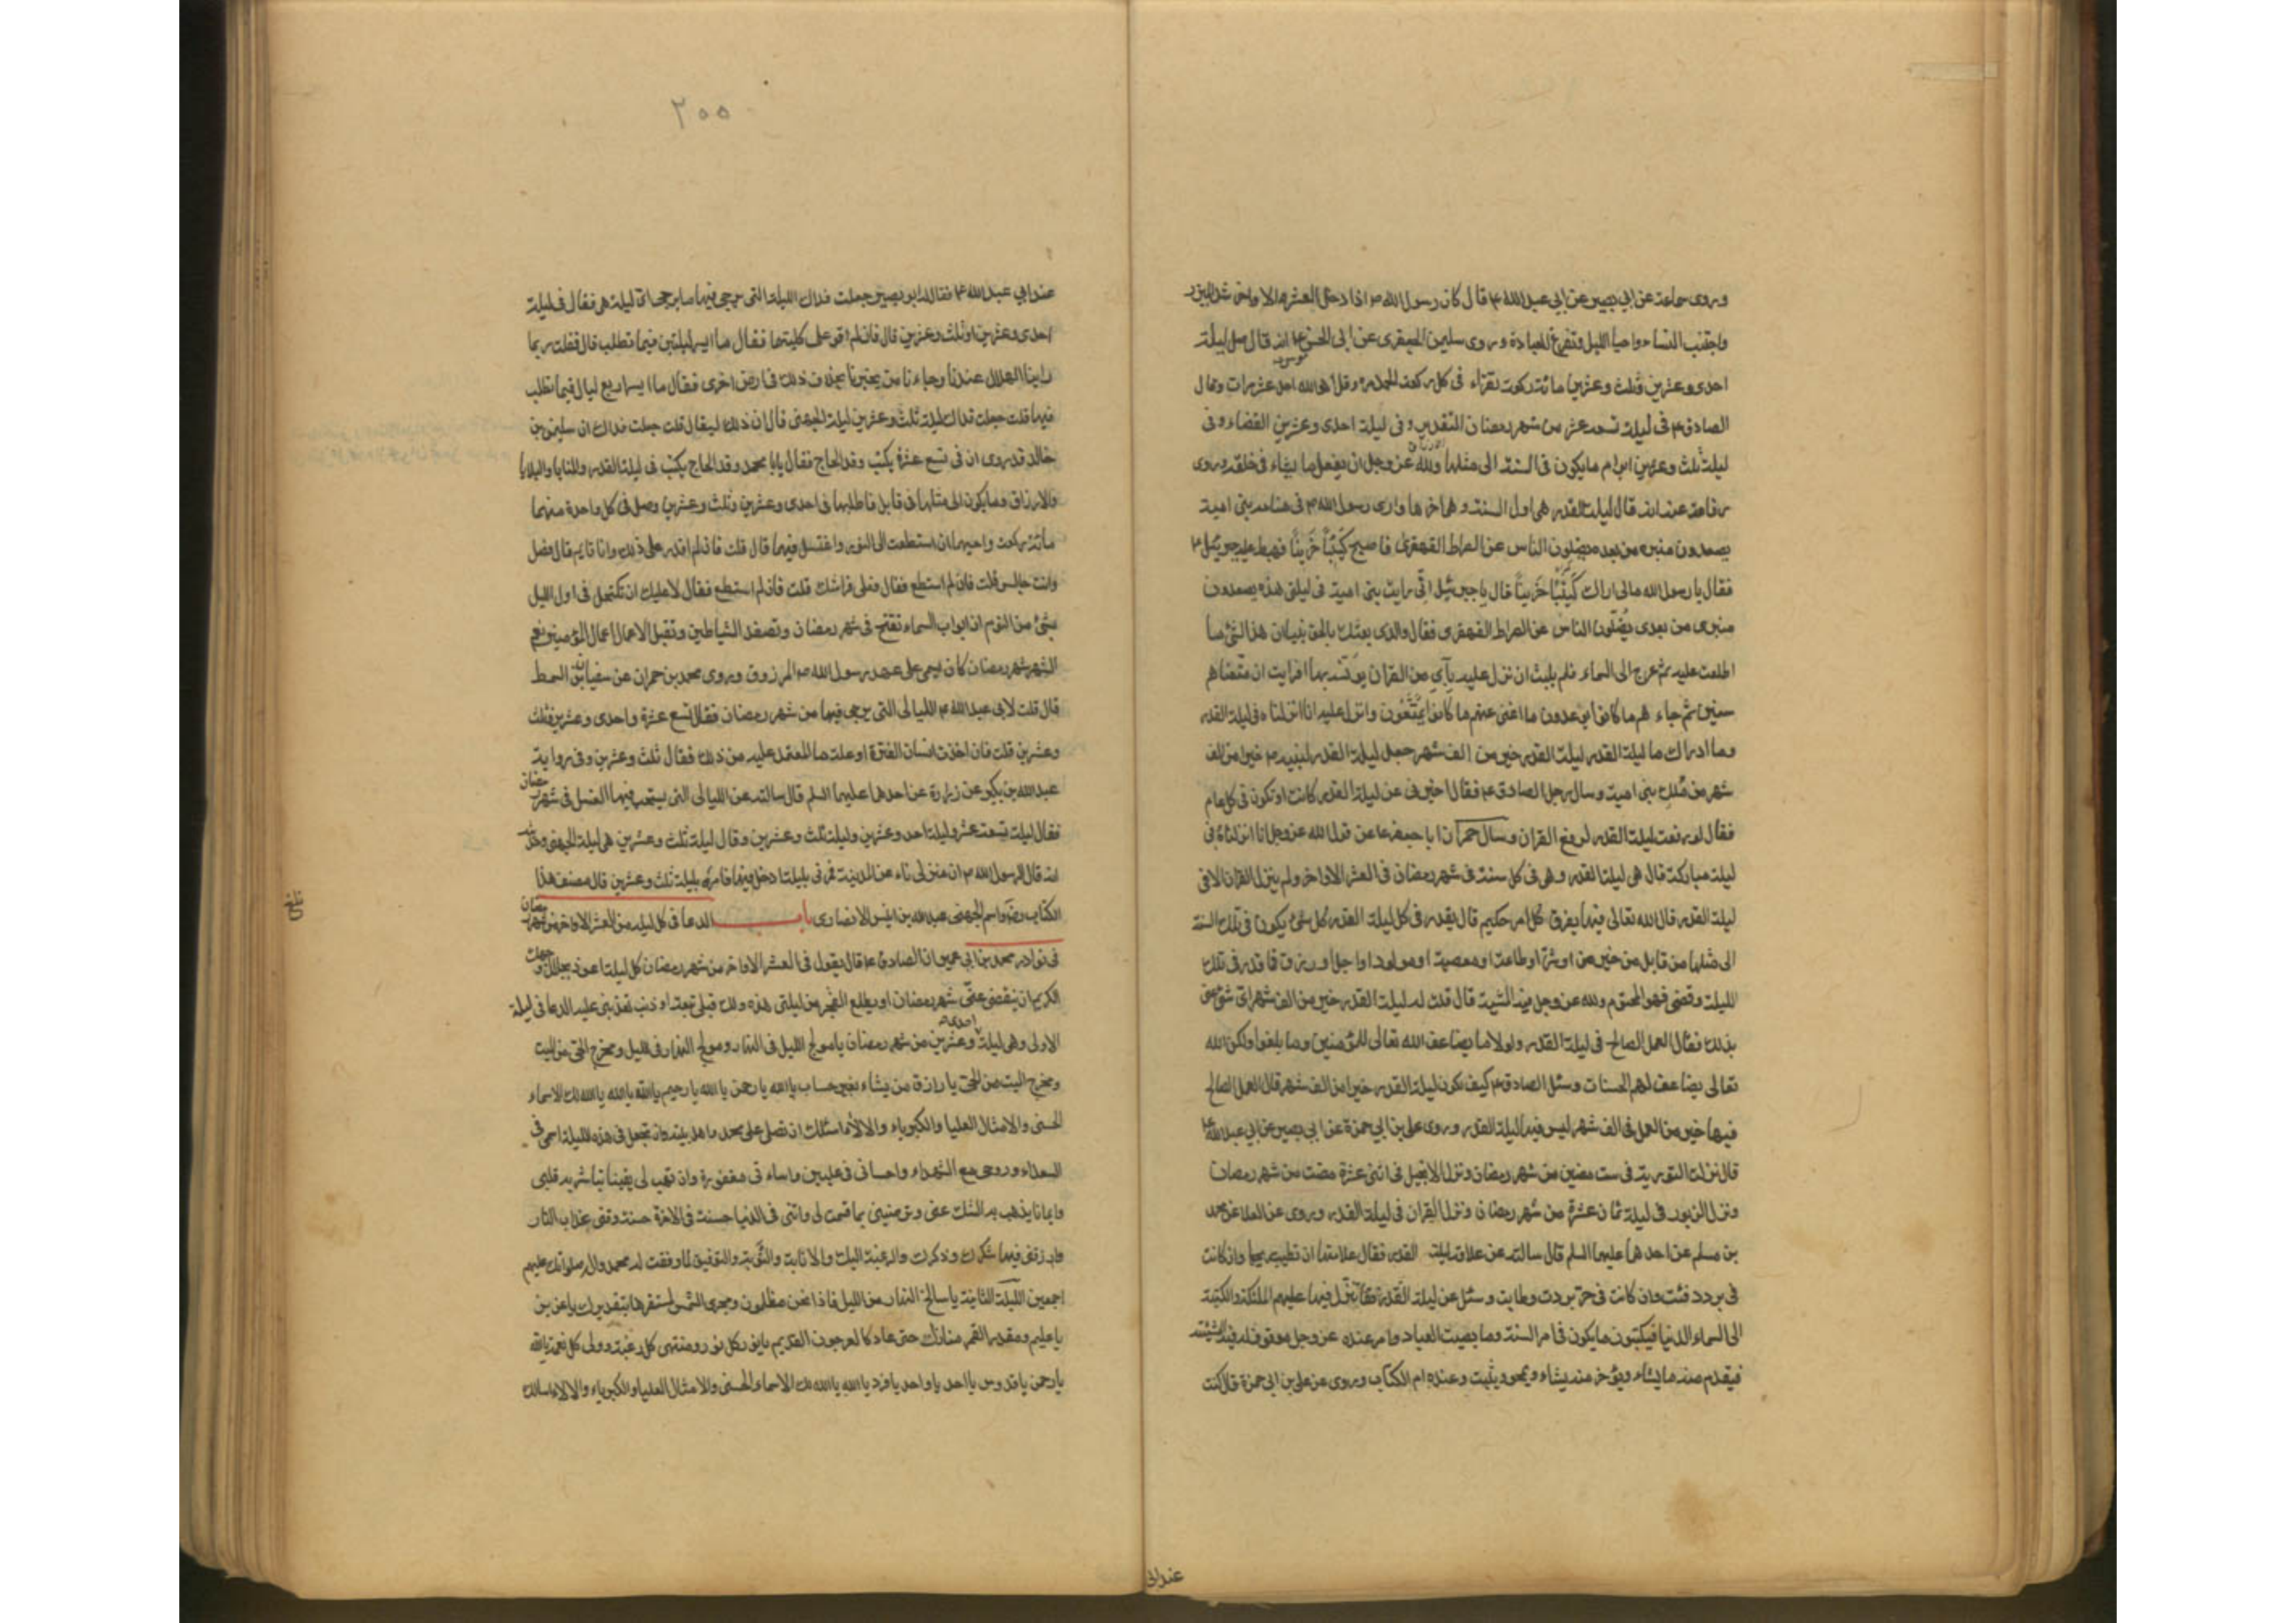 وروى سماعة عن ابي بصير عن ابي عبد الله ع قال كان رسول الله ص اذا دخل العشر الاواخر شد الميزر
واجتنب النساء واحيا الليل وتفرغ للعبادة وروى سليمن الجعفرى عن ابى الحسن ع انه قال صل ليلة
احدى وعشرين وثلث وعشرين مائة ركعة تقراء فى كل ركعة الحمد مرة وقل هو الله احد عشر مرات وقال
الصادق ع فى ليلة تسعة عشر من شهر رمضان التقدير وفى ليلة احدى وعشرين القضاء وفى
ليلة ثلث وعشرين ابرام ما يكون فى السنة الى مثلها ولله عز وجل ان يفعل ما يشاء فى خلقه وروى
رفاعة عنه انه قال ليلة القدر هى اول السنة وهى اخرها وارى رسول الله ص فى منامه بنى امية
يصعدون منبره من بعده يضلون الناس عن الصراط القهقرى فاصبح كئيبا حزينا فهبط عليه جبرئيل ع
فقال يا رسول الله مالى اراك كئيبا حزينا قال يا جبرئيل انى رايت بنى امية فى ليلتى هذه يصعدون
منبرى من بعدى يضلون الناس عن الصراط القهقرى فقال والذى بعثك بالحق نبيا ان هذا لشئ ما
اطلعت عليه ثم عرج الى السماء فلم يلبث ان نزل عليه بآي من القران يونسه بها افرايت ان متعناهم
سنين ثم جاءهم ما كانوا يوعدون ما اغنى عنهم ما كانوا يمتعون وانزل عليه انا انزلناه فى ليلة القدر
وما ادراك ما ليلة القدر ليلة القدر خير من الف شهر جعل ليلة القدر لنبيه ص خيرا من الف
شهر من ملك بنى امية وسال رجل الصادق ع فقال اخبرنى عن ليلة القدر كانت او تكون فى كل عام
فقال لو رفعت ليلة القدر لرفع القران وسال حمران ابا جعفر ع عن قول الله عز وجل انا انزلناه فى
ليلة مباركة قال هى ليلة القدر وهى فى كل سنة فى شهر رمضان فى العشر الاواخر ولم ينزل القران الا فى
ليلة القدر قال الله تعالى فيها يفرق كل امر حكيم قال يقدر فى كل ليلة القدر كل شئ يكون فى تلك السنة
الى مثلها من قابل من خير او شر او طاعة او معصية او مولود او اجل او رزق فما قدر فى تلك
الليلة وقضى فهو المحتوم ولله عز وجل فيه المشية قال قلت له ليلة القدر خير من الف شهر اى شئ عنى
بذلك فقال العمل الصالح فى ليلة القدر ولولا ما يضاعف الله تعالى للمؤمنين ما بلغوا ولكن الله
تعالى يضاعف لهم الحسنات وسئل الصادق ع كيف تكون ليلة القدر خيرا من الف شهر قال العمل الصالح
فيها خير من العمل فى الف شهر ليس فيها ليلة القدر وروى على بن ابى حمزة عن ابى بصير عن ابى عبد الله ع
قال نزلت التورية فى ست مضين من شهر رمضان ونزل الانجيل فى اثنى عشرة مضت من شهر رمضان
ونزل الزبور فى ليلة ثمان عشرة من شهر رمضان ونزل القران فى ليلة القدر وروى عن العلا عن محمد
بن مسلم عن احدهما عليهما السلم قال سالته عن علامة ليلة القدر فقال علامتها ان تطيب ريحها وان كانت
فى برد دفئت وان كانت فى حر بردت وطابت وسئل عن ليلة القدر فقال تنزل فيها عليهم الملئكة والكتبة
الى السماء الدنيا فيكتبون ما يكون فى امر السنة وما يصيب العباد وامر عنده عز وجل موقوف له فيه المشية
فيقدم منه ما يشاء ويؤخر منه يشاء ويمحو ويثبت وعنده ام الكتاب وروى عن على بن ابى حمزة قال كنت
عند ابى
٢٠٠
عند ابي عبد الله ع فقال له ابو بصير جعلت فداك الليلة التى يرجى فيها ما يرجى اى ليلة هى فقال فى ليلة
احدى وعشرين او ثلث وعشرين قال فان لم اقو على كلتيهما فقال ما ايسر ليلتين فيما تطلب قال فقلت ربما
راينا الهلال عندنا وجاءنا من يخبرنا بخلاف ذلك فى ارض اخرى فقال ما ايسر اربع ليال فيما تطلب
فيها قلت جعلت فداك ليلة ثلث وعشرين ليلة الجهنى قال ان ذلك ليقال قلت جعلت فداك ان سليمن بن
خالد قد روى ان فى تسع عشرة يكتب وفد الحاج فقال يا با محمد وفد الحاج يكتب فى ليلة القدر والمنايا والبلايا
والارزاق وما يكون الى مثلها فى قابل فاطلبها فى احدى وعشرين وثلث وعشرين وصل فى كل واحدة منهما
مائة ركعة واحيهما ان استطعت الى النور واغتسل فيهما قال قلت فان لم اقدر على ذلك وانا قائم قال فصل
وانت جالس قلت فان لم استطع فقال فعلى فراشك قلت فان لم استطع فقال لا عليك ان تكتحل فى اول الليل
بشئ من النوم ان ابواب السماء تفتح فى شهر رمضان وتصفد الشياطين وتقبل الاعمال اعمال المؤمنين نعم
الشهر شهر رمضان كان يسمى على عهد رسول الله ص المرزوق وروى محمد بن حمران عن سفيان بن السمط
قال قلت لابى عبد الله ع الليالى التى يرجى فيها من شهر رمضان فقال تسع عشرة واحدى وعشرين وثلث
وعشرين قلت فان اخذت انسان الفترة او علة ما المعتمد عليه من ذلك فقال ثلث وعشرين وفى رواية
عبد الله بن بكير عن زرارة عن احدهما عليهما السلم قال سالته عن الليالى التى يستحب فيها الغسل فى شهر رمضان
فقال ليلة تسعة عشر وليلة احد وعشرين وليلة ثلث وعشرين وقال ليلة ثلث وعشرين هى ليلة الجهنى وحديثه
انه قال لرسول الله ص ان منزلى ناء عن المدينة فمرنى بليلة ادخل فيها فامره بليلة ثلث وعشرين قال مصنف هذا
الكتاب رضه واسم الجهنى عبد الله بن انيس الانصارى باب الدعا فى كل ليلة من العشر الاواخر من شهر رمضان
فى نوادر محمد بن ابى عمير ان الصادق ع قال يقول فى العشر الاواخر من شهر رمضان كل ليلة اعوذ بجلال وجهك
الكريم ان ينقضى عنى شهر رمضان او يطلع الفجر من ليلتى هذه ولك قبلى تبعة او ذنب تعذبنى عليه الدعا فى ليلة
الاولى وهى ليلة احدى وعشرين من شهر رمضان يا مولج الليل فى النهار ومولج النهار فى الليل ومخرج الحى من الميت
ومخرج الميت من الحى يا رازق من يشاء بغير حساب يا الله يا رحمن يا الله يا رحيم يا الله يا الله يا الله لك الاسماء
الحسنى والامثال العليا والكبرياء والالاء اسئلك ان تصلى على محمد واهل بيته وان تجعل فى هذه الليلة اسمى فى
السعداء وروحى مع الشهداء واحسانى فى عليين واساءتى مغفورة وان تهب لى يقينا تباشر به قلبى
وايمانا يذهب به الشك عنى وترضينى بما قسمت لى واتنى فى الدنيا حسنة وفى الاخرة حسنة وقنى عذاب النار
وارزقنى فيها شكرك وذكرك والرغبة اليك والانابة والتوبة والتوفيق لما وفقت له محمد وال صلواتك عليهم
اجمعين الليلة الثانية يا سالخ النهار من الليل فاذا نحن مظلمون ومجرى الشمس لمستقرها بتقديرك يا عزيز
يا عليم ومقدر القمر منازل حتى عاد كالعرجون القديم يا نور كل نور ومنتهى كل رغبة وولى كل نعمة يا الله
يا رحمن يا قدوس يا احد يا واحد يا فرد يا الله يا الله لك الاسماء الحسنى والامثال العليا والكبرياء والالاء اسالك